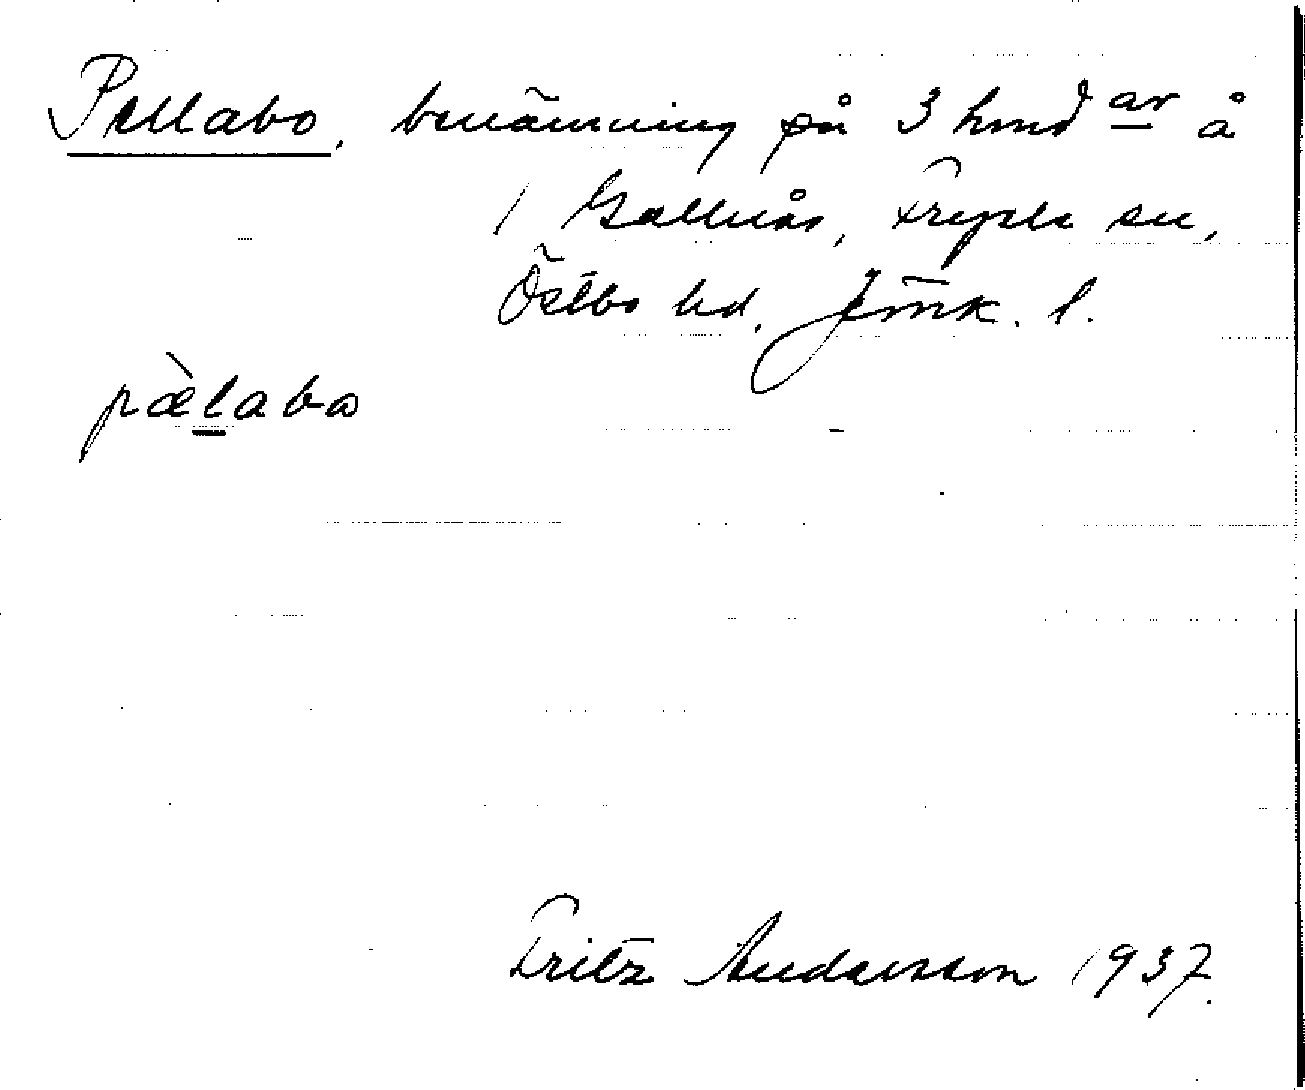 Pellabo, benämning på 3 hmd ar å
1 Gällnäs, Fryele sn,
Östbo hd, Jönk. l.
pælabo
Fritz Andersson 1937.